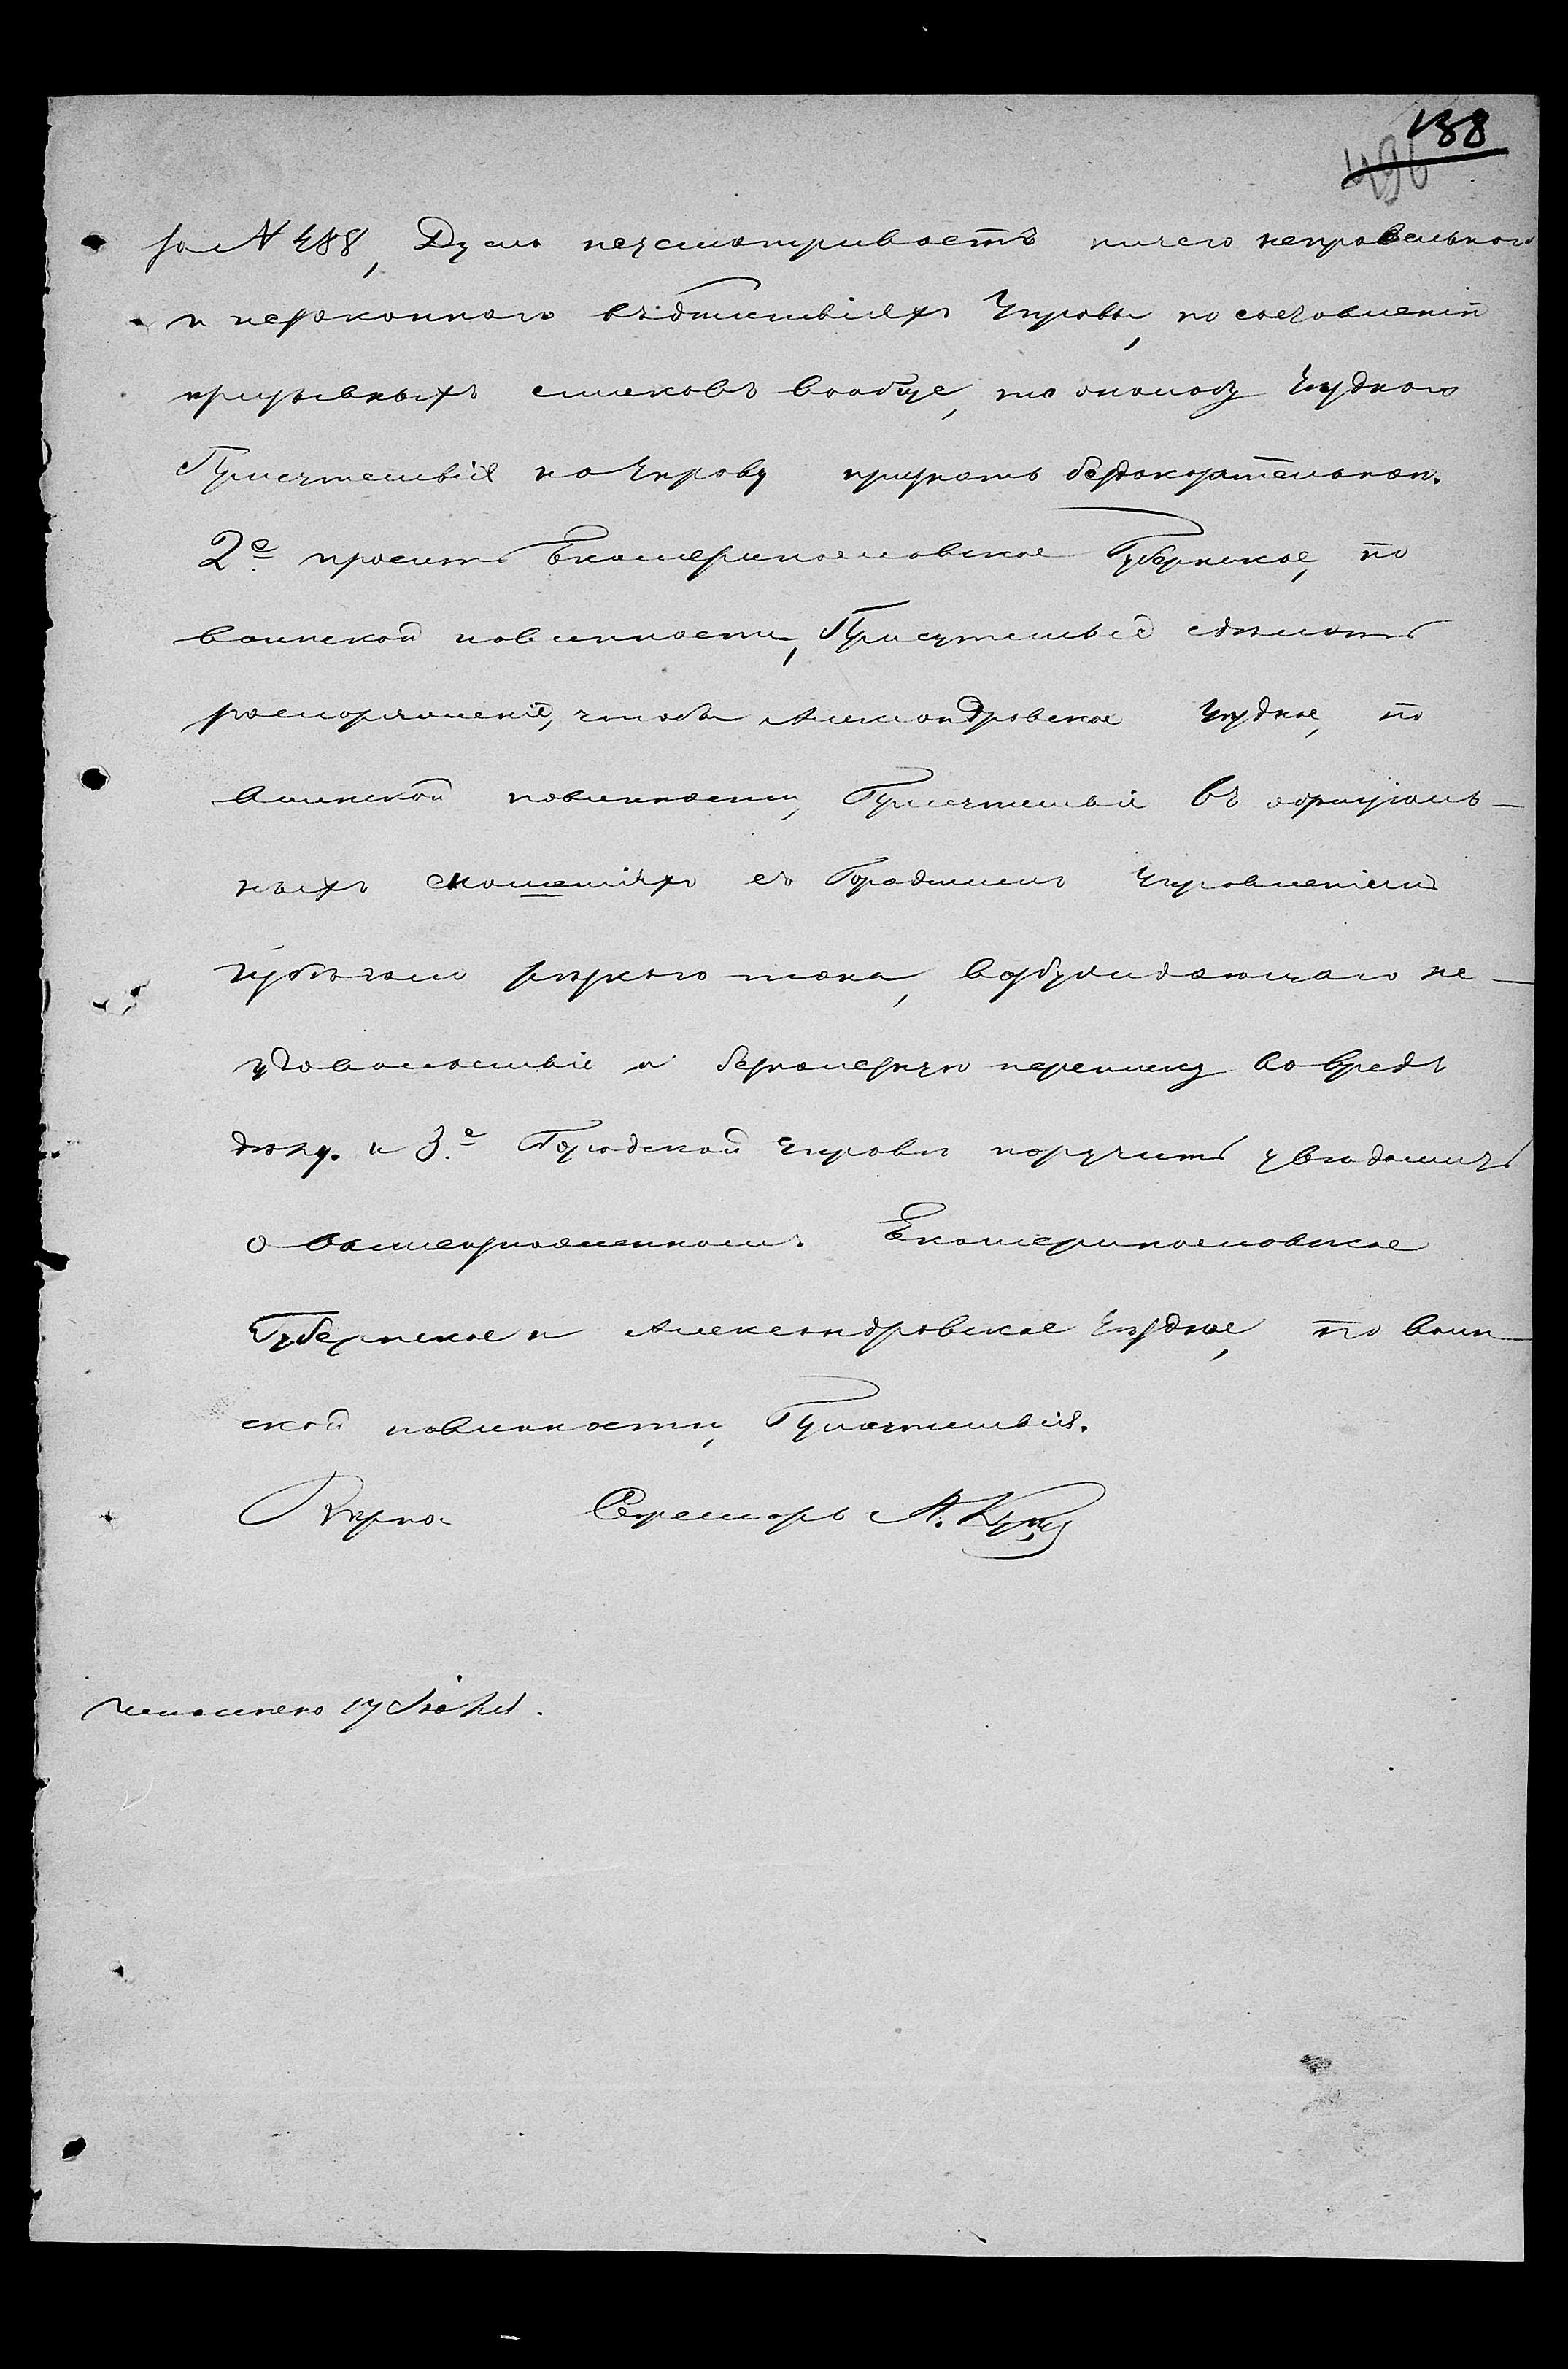 138
496
за № 488, Дума неусматриваетъ ничего неправельного
и незаконного въдѣйствіяхъ Управы, по составленію
призывныхъ списковъ вообще, то жалобу Уѣзднаго
Присутствія на Управу признать бездоказательною.
2е просить Екатеринославское Губернское, по
воинской повинности, Присутствіе сдѣлать
распоряженіе, чтобы Александровское Уѣздное, по
воинской повинности, Присутствіе въ оффиціаль-
ныхъ сношеніяхъ съ Городскимъ Управленіемъ
избѣгало рѣзкаго тона, возбуждающаго не-
удовольствіе и безполезную переписку во вредъ
дѣлу. и 3е Городской Управѣ поручить увѣдомить
о вышеизложенномъ Екатеринославское
Губернское и Александровское Уѣздное, по воин-
ской повинности, Присутствія.
Вѣрно: Секретарь А.
исполнено 17 Іюля.